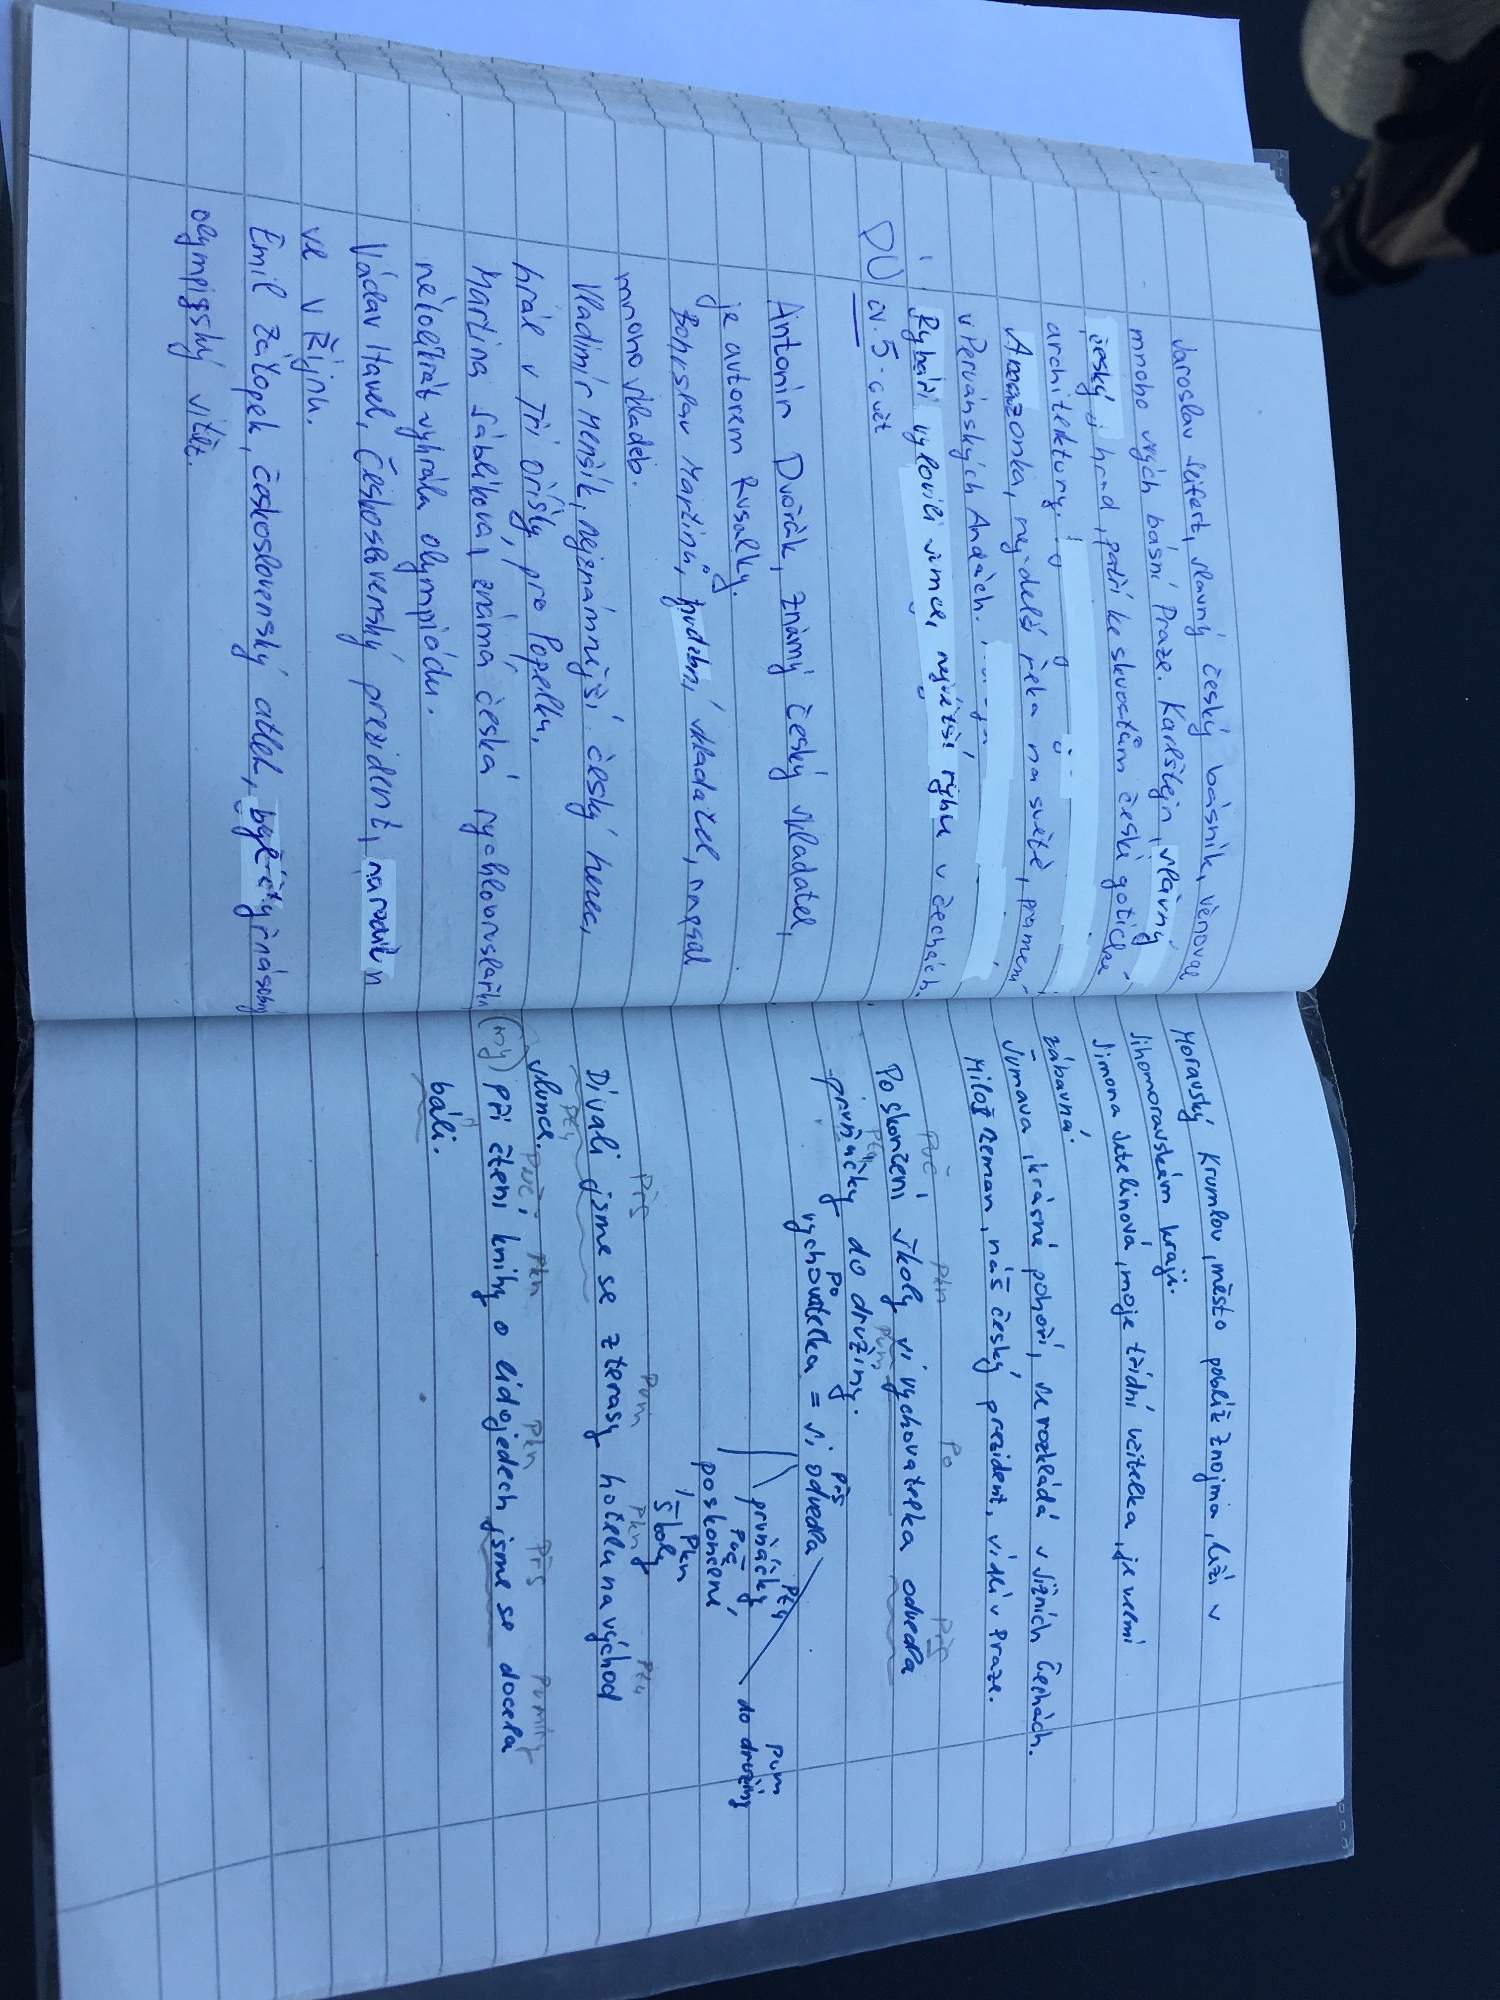 Jaroslav Seifert, slavný český básník, věnoval
mnoho svých básní Praze. Karlštejn, slavný
český hrad, patří ke skvostům české gotické
architektury.
Amazonka, nejdelší řeka na světě, pramení
v Peruánských Andách.
Rybáři vylovili sumce, největší rybu v Čechách.
DÚ cv. 5 - 6 vět
Antonín Dvořák, známý český skladatel,
je autorem Rusalky.
Bohuslav Martinů, hudební skladatel, napsal
mnoho skladeb.
Vladimír Menšík, nejznámnější český herec,
hrál v Tři oříšky pro Popelku.
Martina Sáblíková, známá česká rychlobruslařka
několikrát vyhrála olympiádu.
Václav Havel, Československý prezident, narodil
se v Říjnu.
Emil Zátopek, československý atlet, byl čtyřnásobný
olympijský vítěz.
Moravský Krumlov, město poblíž Znojma, leží v
Jihomoravském kraji.
Simona Setelinová, moje třídní učitelka, je velmi
zábavná.
Šumava, krásné pohoří, se rozkládá v Jižních Čechách.
Miloš Zeman, náš český prezident, sídlí v Praze.
Puč Pkn Po Přs
Po skončení školy si vychovatelka odvedla
Ptý Pum
prvňáčky do družiny.
Po Přs
vychovatelka = si odvedla
Ptý Pum
prvňáčky do družiny
Puč
po skončení
Pkn
školy
Přs Pum Pkn Ptý
Dívali jsme se z terasy hotelu na východ
Ptý
slunce.
Puč Pkn Pkn Přs Pumíry
(my) Při čtení knihy o lidojedech jsme se docela
báli.